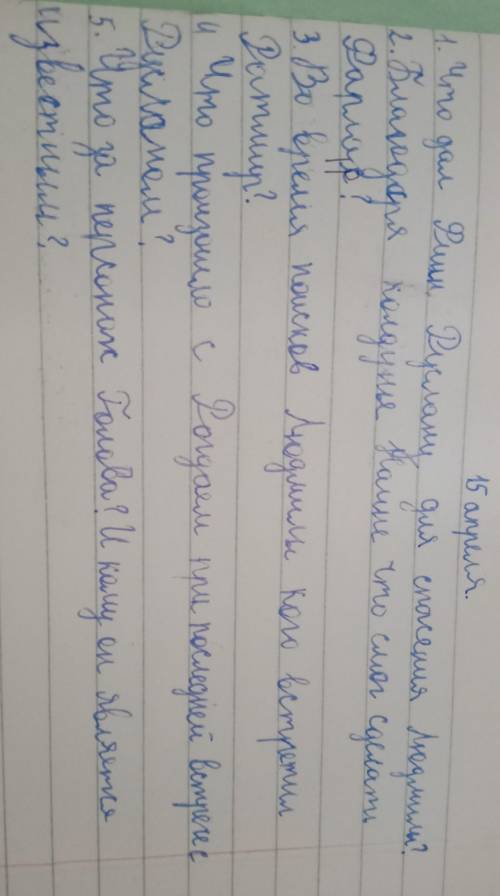 15 апреля.
1. Что дал Финн Руслану для спасения Людмилы?
2. Благодаря колдунье Наине что смог сделать
Фарлаф?
3. Во время поисков Людмилы кого встретил
Ратмир?
4 Что произошло с Рогдаем при последней встрече с
Русланом?
5. Что за персонаж Голова? И кому он является
известным?